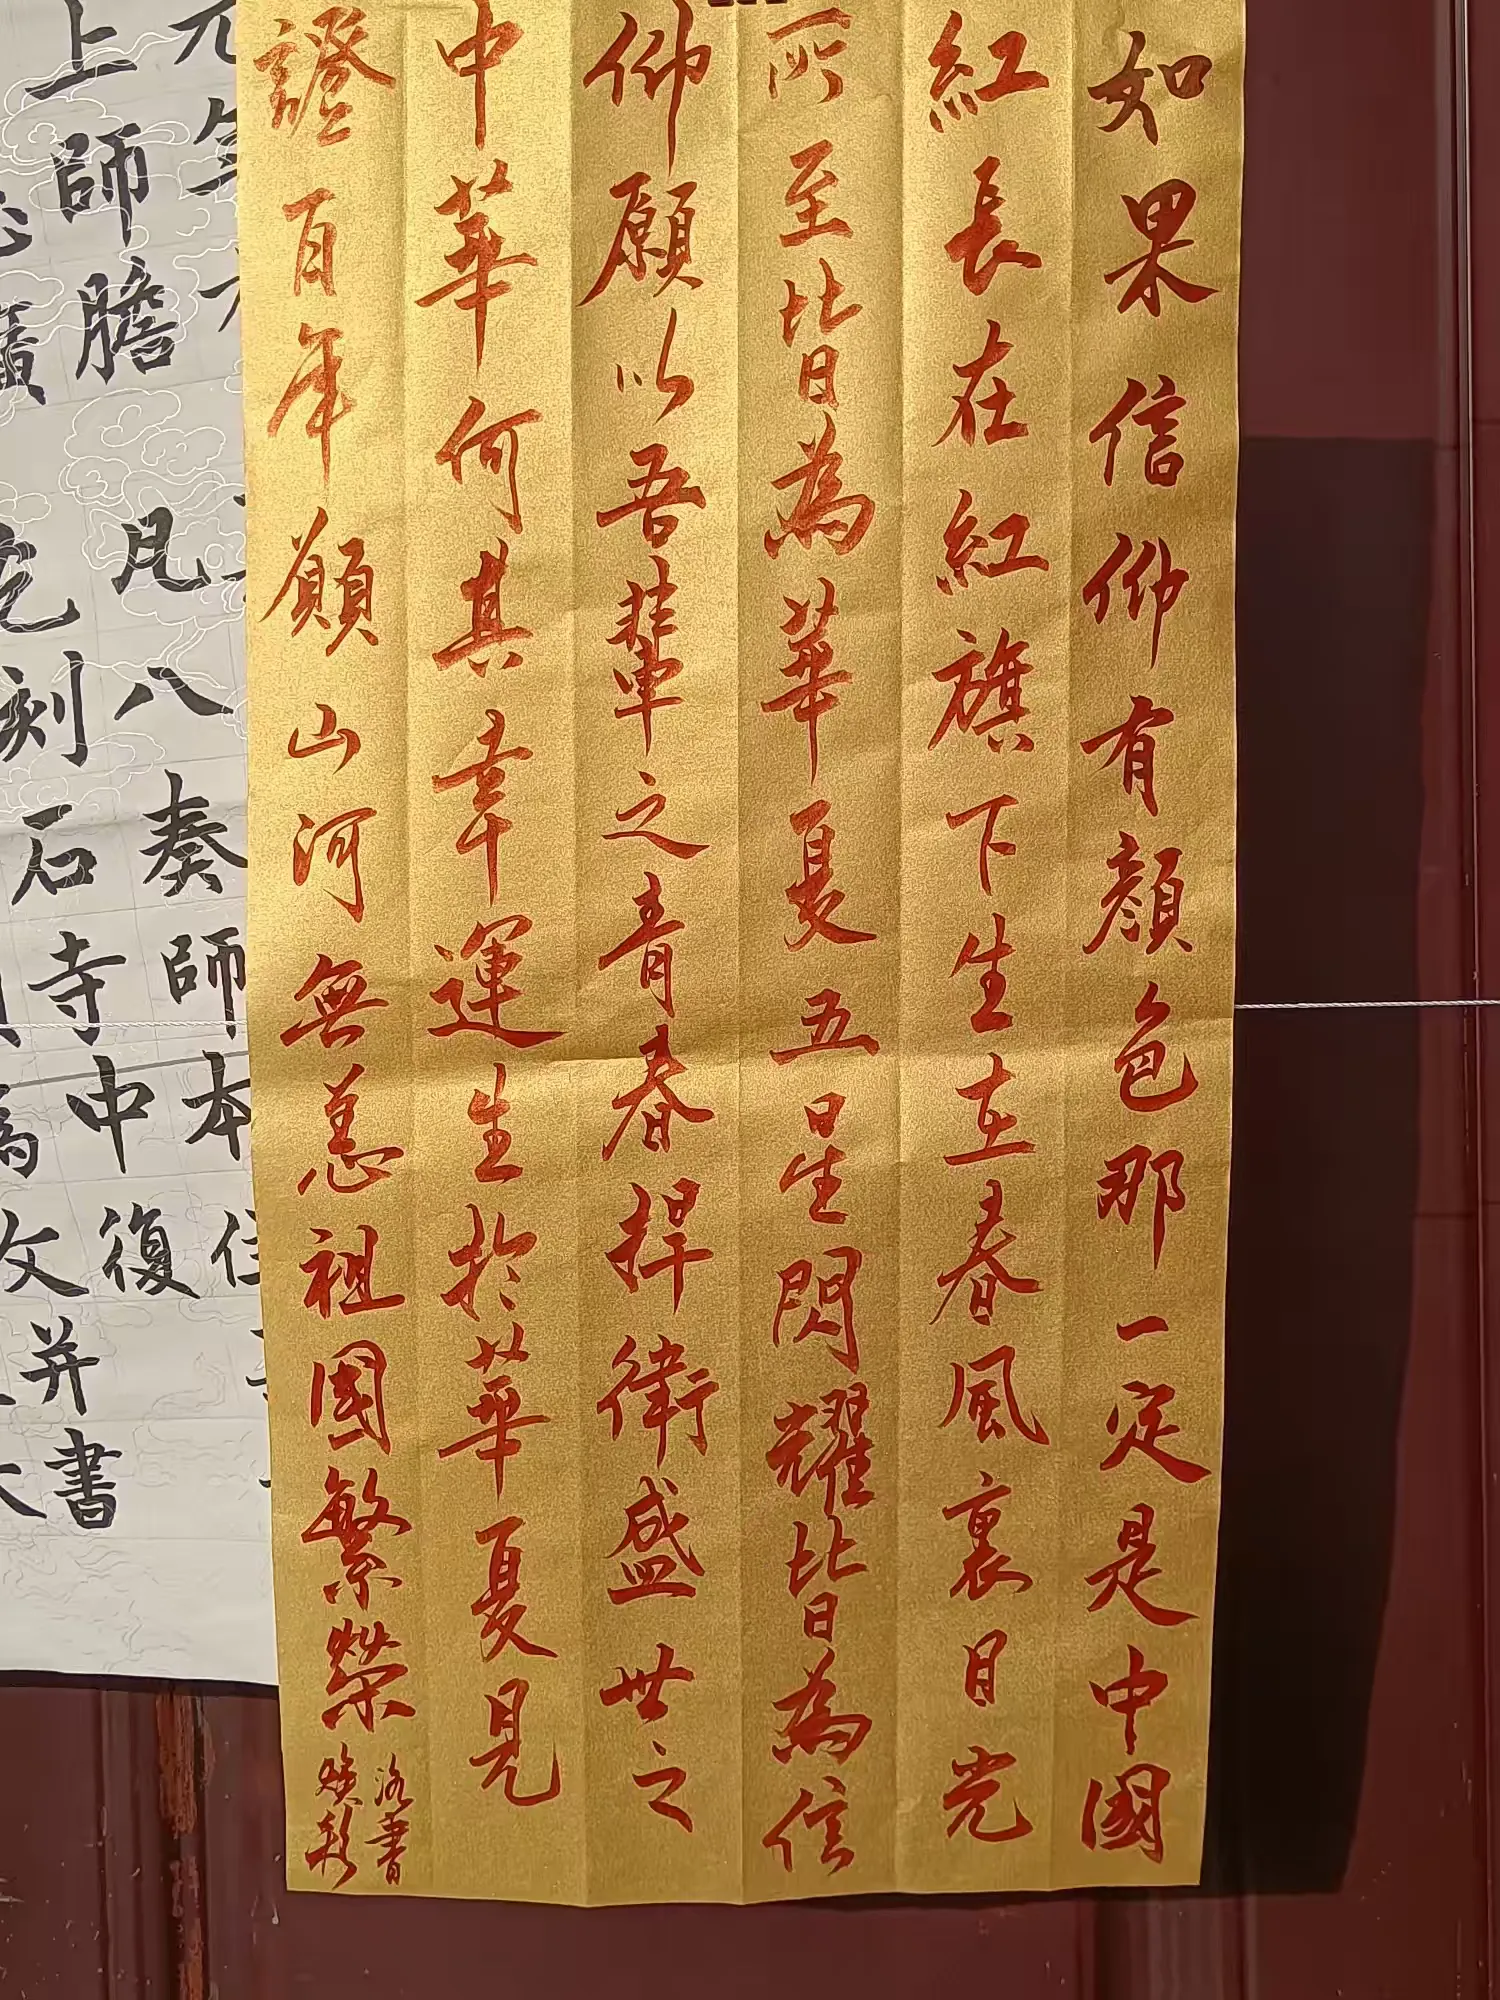 如果信仰有顔色那一定是中國
紅長在紅旗下生在春風裏目光
所至皆為華夏五星閃耀皆為信
仰願以吾輩之青春捍衛盛世之
中華何其幸運生於華夏見
證百年願山河無恙祖國繁榮
洛書
元氣
上師膽凡八奏師本住
廣刻石寺中復
為文并書